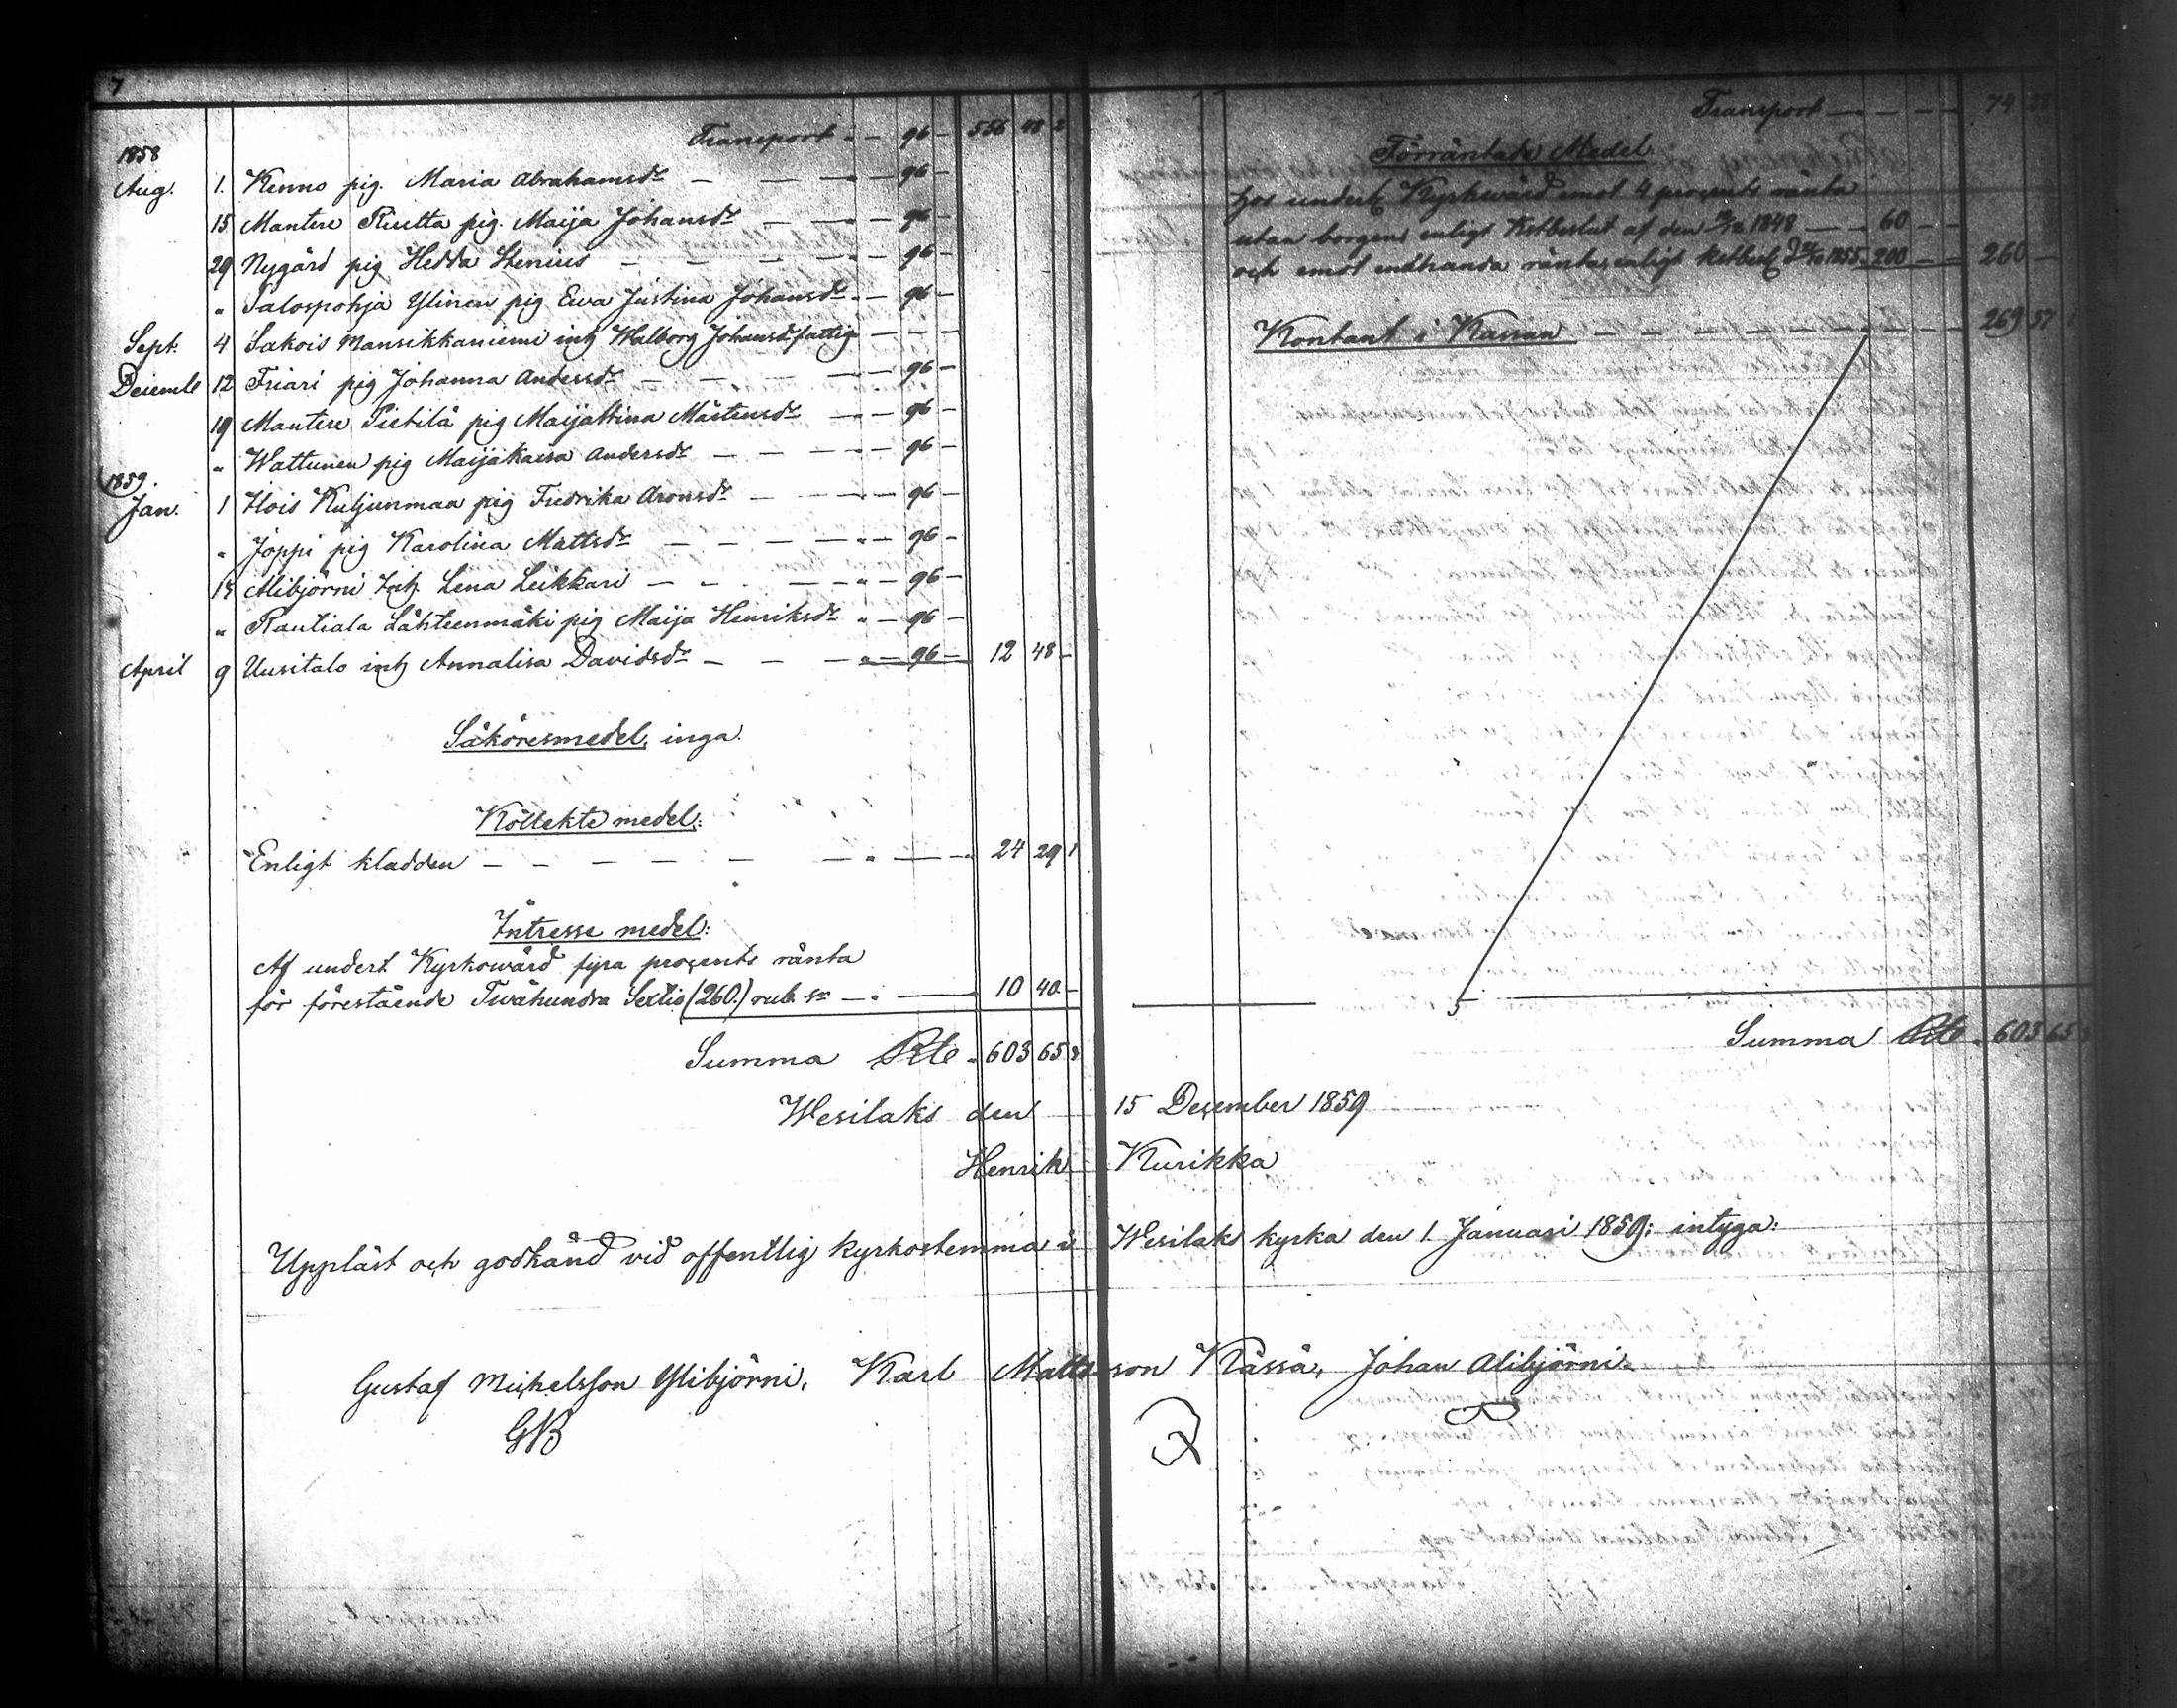 7
Transport - - 96 - 556 48 2
1858
Aug. 1. Kenno pig. Maria Abrahamsdr - - - - 96 -
15 Mantere Riutta pig. Maija Johansdr - - - 96 -
29 Nygård pig Hedda Stenius - - - - 96 -
" Salospohja Ylinen pig Ewa Justina Johansdr - - 96 -
Sept. 4 Sakois Mansikkaniemi inh Walborg Johansd fattig - - -
Decemb 12 Friari pig Johanna Andersdr - - - - 96 -
19 Mantere Pietilä pig Maijastina Mårtensdr - - 96 -
" Wattunen pig Maijakaisa Andersdr - - - - 96 -
1859.
Jan. 1 Hois Kuljunmaa pig Fredrika Aronsdr - - - 96 -
" Joppi pig Karolina Mattsdr - - - - 96 -
Alibjörni Inh. Lena Leikkari - - - - 96 -
" Rautiala Lähteenmäki pig Maija Henriksdr " - 96 -
April 9 Uusitalo inh Annalisa Davidsdr - - - 96 - 12 48 -
Saköresmedel, inga.
Kollekte medel:
Enligt kladden - - - - - - 24 29 1
Intresse medel:
Af undert. Kyrkowärd fyra procents ränta
för förestående Twåhundra Sextio (260.) rub. sr - 10 40 -
Summa Rub " 603 65 3
Transport - - - - 74
Förräntade Medel.
hos undert Kyrkwärd emot 4 procents ränta
utan borgen enligt Kstbeslut af den 1848 - - 60 - -
och emot endhanda ränta, enligt kstbesl d 1855 200 - - 260 -
Kontant i Kassan - - - - - - 269 37
Summa Rub " 603 65
Wesilaks den 15 December 1859
Henrik Kurikka
Uppläst och godkänd vid offentlig kyrkostemma i Wesilaks kyrka den 1 Januari 1859; intyga:
Gustaf Michelsson Ylibjörni, Karl Mattsson Kässä, Johan Alibjörni
GB